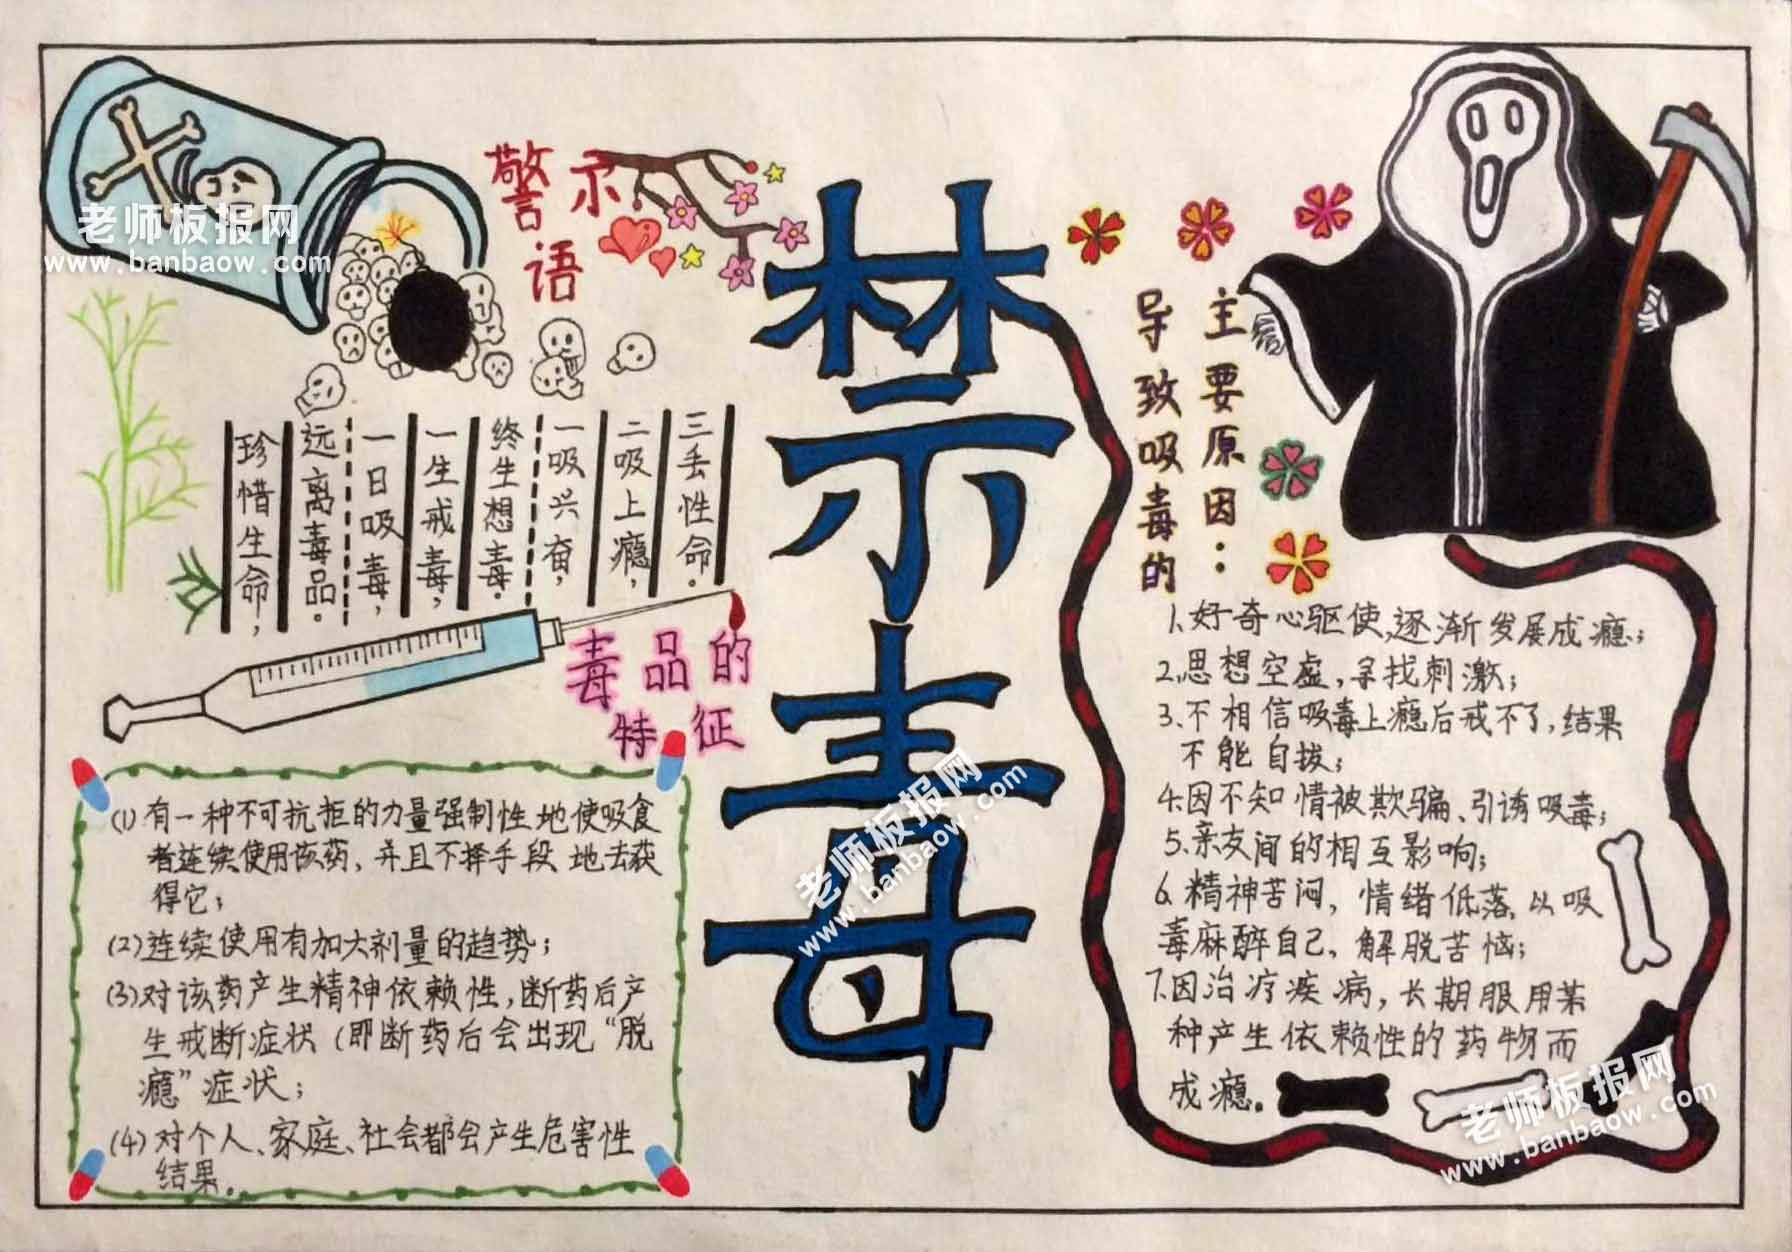 警示
语
珍惜生命，
远离毒品。
一日吸毒，
一生戒毒，
终生想毒。
一吸兴奋，
二吸上瘾，
三丢性命。
禁毒
毒品的
特征
(1)有一种不可抗拒的力量强制性地使吸食
者连续使用该药，并且不择手段地去获
得它；
(2)连续使用有加大剂量的趋势；
(3)对该药产生精神依赖性，断药后产
生戒断症状(即断药后会出现“脱
瘾”症状；
(4)对个人、家庭、社会都会产生危害性
结果。
导致吸毒的
主要原因：
1、好奇心驱使，逐渐发展成瘾；
2、思想空虚，寻找刺激；
3、不相信吸毒上瘾后戒不了，结果
不能自拔；
4、因不知情被欺骗、引诱吸毒；
5、亲友间的相互影响；
6、精神苦闷，情绪低落，以吸
毒麻醉自己，解脱苦恼；
7、因治疗疾病，长期服用某
种产生依赖性的药物而
成瘾。
老师板报网
www.banbaow.com
老师板报网
www.banbaow.com
老师板报网
www.banbaow.com